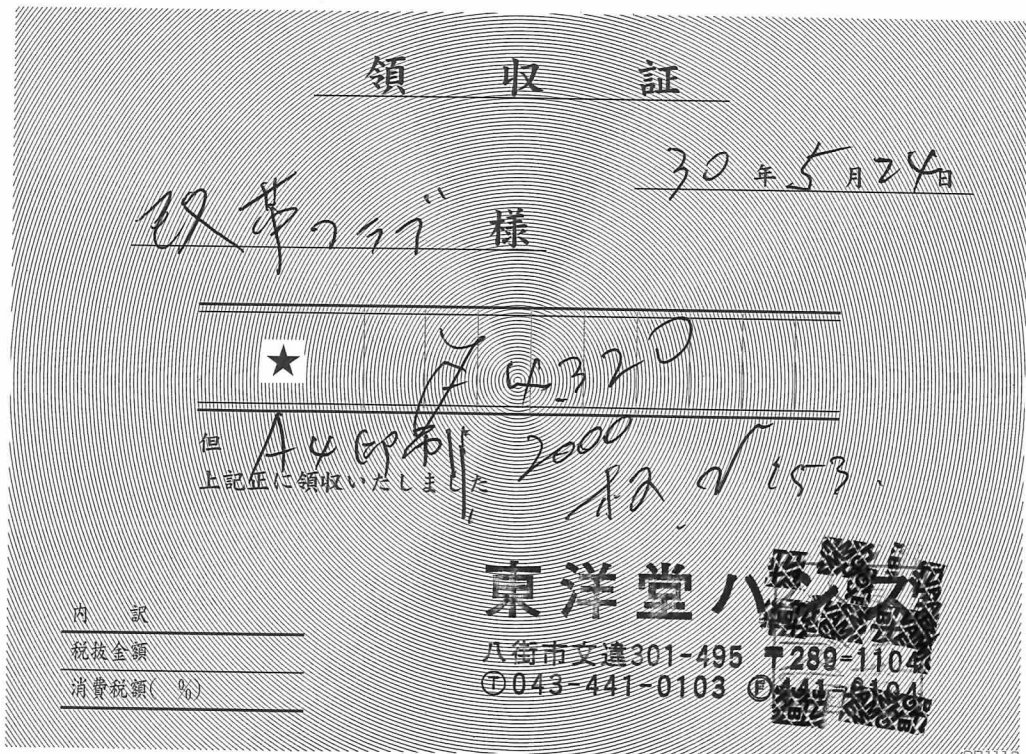 領収証
30年5月24日
改革クラブ 様
★ ¥4320
但 A4印刷 2000枚 √153.
上記正に領収いたしました
東洋堂ハンズ
八街市文違301-495 〒289-1104
Ⓣ043-441-0103 Ⓕ441-0104
内訳
税抜金額
消費税額( %)